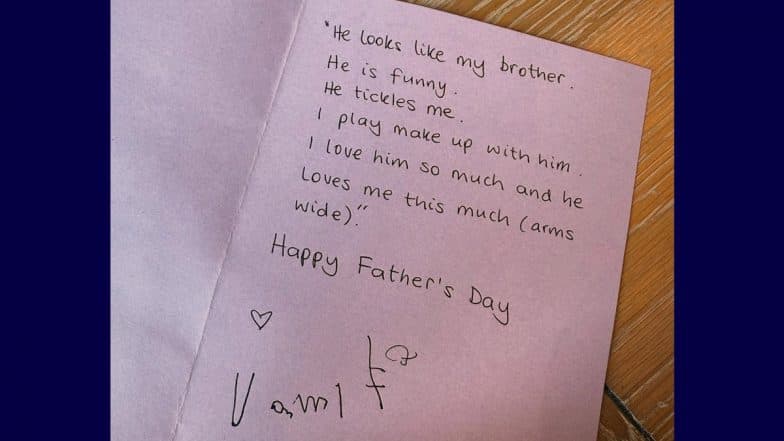 "He looks like my brother.
He is funny.
He tickles me.
I play make up with him.
I love him so much and he
Loves me this much (arms
wide)."
Happy Father's Day